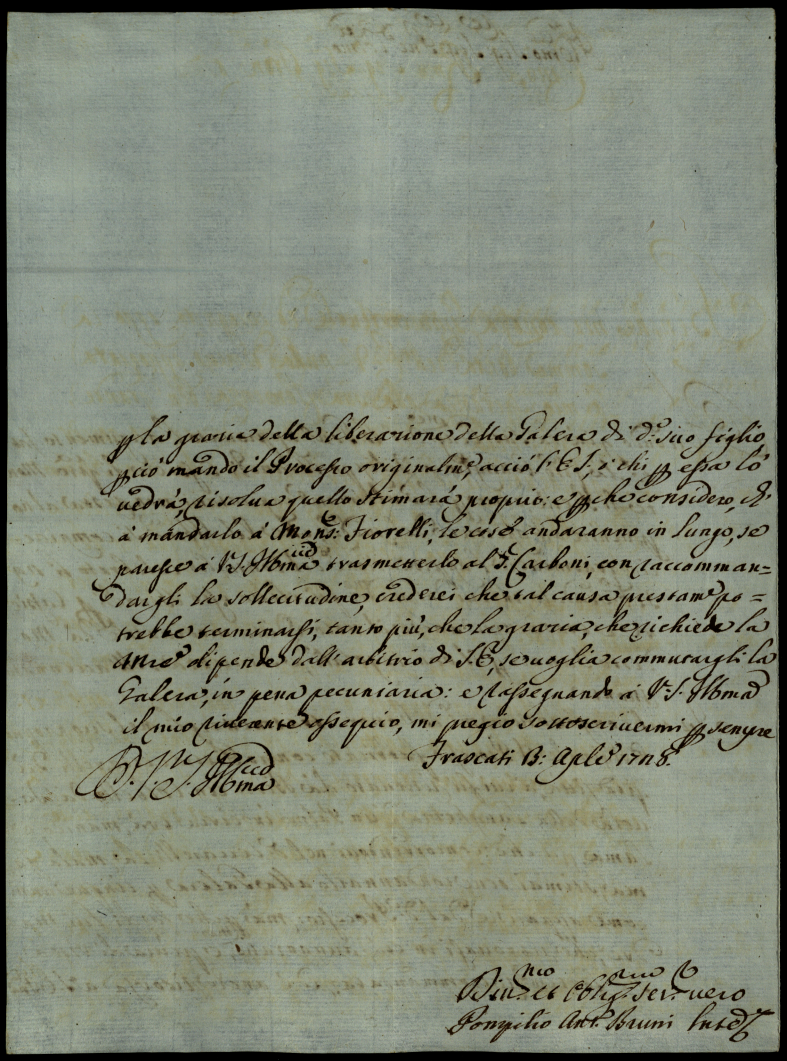 p la grazia della liberazione della Galera di d.º suo figlio
pciò mando il Processo originalm.e, acciò l'E S, e chi p essa lo
vedrà, risolva quello stimarà proprio: e pche considero, ch'
à mandarlo à Mons.r Fiorelli, le cose andaranno in lungo, se
paresse à V.S. Illma trasmetterlo al S.r Carboni, con raccomman=
dargli la sollecitudine, crederei che tal causa prestam.e po=
trebbe terminarsi, tanto più, che la grazia, che richiede la
Mre dipende dall'arbitrio di S.E, se voglia commutargli la
Galera, in pena pecuniaria: e rassegnando à V.S. Illma
il mio riverente ossequio, mi pregio sottoscrivermi p sempre
D. V. S. Illma Frascati 13: Aple 1748
Div.mo et Oblig.mo Ser.e vero
Pompilio Ant.o Bruni